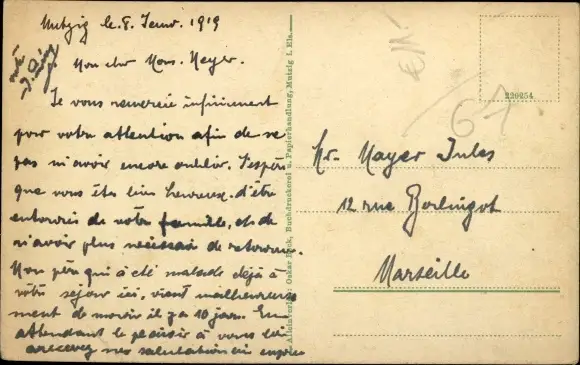 Mutzig le 8. Janv. 1919
Mon cher Mons. Meyer.
Je vous remercie infiniment
pour votre attention afin de ne
pas m'avoir encore oublié. J'espère
que vous êtes bien heureux d'être
entourés de votre famille, et de
n'avoir plus nécessair de retourner.
Mon père qui a été malade déjà à
votre sejour ici, vient malheureuse
ment de mourir il y a 10 jours. En
attendant le plaisir à vous lire
recevez mes salutations
Alleinverlag: Oskar Buchdruckerei u. Papierhandlung, Mutzig i. Els.
226254
61
Mr. Mayer Jules
12 rue
Marseille